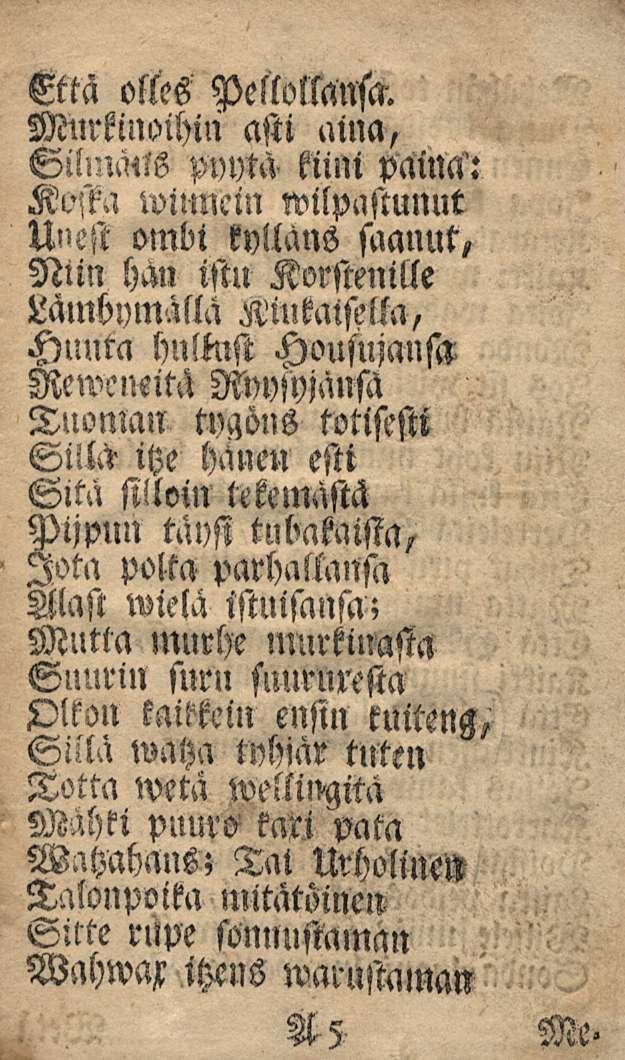 Että olles Pellollansa.
Murkinoihin asti aina,
Silmäns pyytä kiini paina:
Koska winnein wilpastunut
Unest ombi kylläns saanut,
Niin hän istu Korstenille
Lämbymällä Kiukaisella,
Huuta hullust Housujansa
Reweneitä Ryysyjänsä
Tuoman tygöns totisesti
Sillä itze hänen esti
Sitä silloin tekemästä
Pijpun täysi tubakaista,
Jota polta parhallansa
Alast wielä istuisansa;
Mutta murhe murkinasta
Suurin suru suuruxesta
Olkon kaikkein ensin kuiteng,
Sillä watza tyhjäx tuten
Totta wetä wellingitä
Mähki puuro kaxi pata
Watzahans; Tai Urholinen
Talonpoika mitätöinen
Sitte rupe sonnustaman
Wahwax itzens warustaman
A 5 Me-